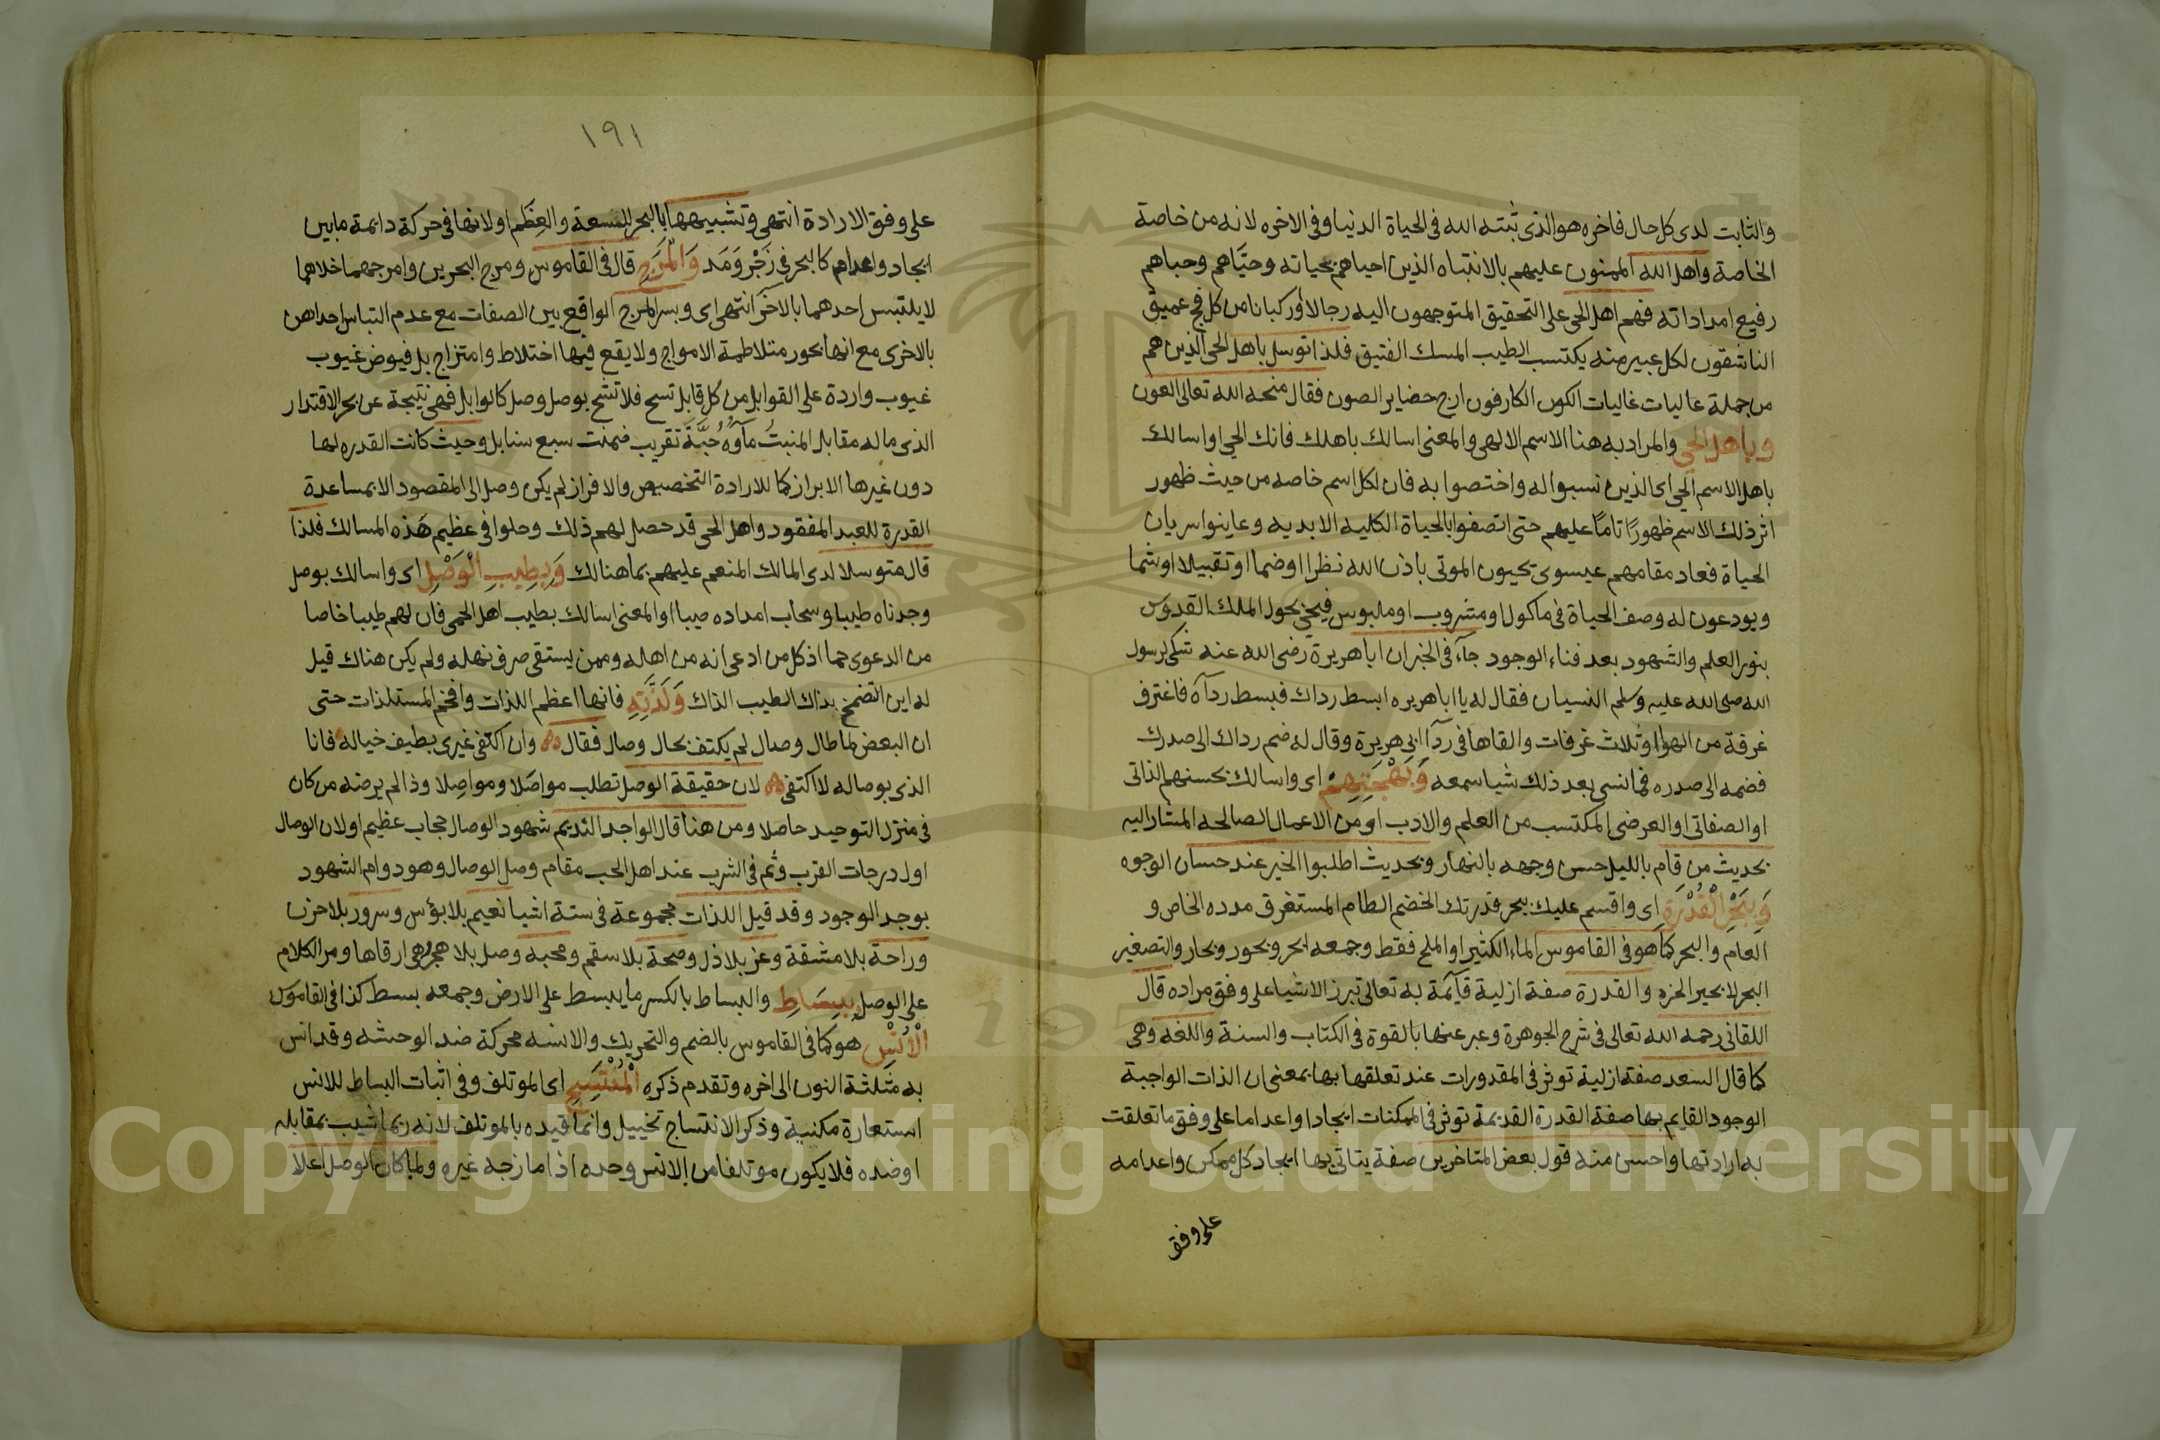 والثابت لدى كل حال فاخره هو الذى ثبته الله فى الحياة الدنيا وفى الاخره لانه من خاصة
الخاصة واهل الله الممنون عليهم بالانتباه الذين احياهم بحياته وحيّاهم وحباهم
رفيع امداداته فهم اهل الحى على التحقيق المتوجهون اليه رجالا وركبانا من كل فج عميق
الناشقون لكل عبير منه يكتسب الطيب المسك الفتيق فلذا توسل باهل الحى الذين هم
من جملة عاليات غاليات الكون الكارفون ارج حضاير الصون فقال منحه الله تعالى العون
وباهل الحي والمراد به هنا الاسم الالهى والمعنى اسالك باهلك فانك الحي او اسالك
باهل الاسم الحي اى الذين نسبوا له واختصوا به فان لكل اسم خاصه من حيث ظهور
اثر ذلك الاسم ظهورًا تامًا عليهم حتى اتصفوا بالحياة الكليه الابديه وعاينوا سريان
الحياة فعاد مقامهم عيسوى يحيون الموتى باذن الله نظرا او ضما او تقبيلا او شما
ويودعون له وصف الحياة فى ماكول او مشروب او ملبوس فيحيى بحول الملك القدوس
بنور العلم والشهود بعد فناء الوجود جآء فى الخبر ان ابا هريرة رضى الله عنه شكى لرسول
الله صلى الله عليه وسلم النسيان فقال له يا ابا هريره ابسط رداك فبسط ردآه فاغترف
غرفة من الهوا او ثلاث غرفات والقاها فى ردآ ابى هريرة وقال له ضم رداك الى صدرك
فضمه الى صدره فما نسى بعد ذلك شيا سمعه وَبَهْجَتِهِمْ اى واسالك بحسنهم الذاتى
او الصفاتى او العرضى المكتسب من العلم والادب او من الاعمال الصالحه المشار اليه
بحديث من قام بالليل حسن وجهه بالنهار وبحديث اطلبوا الخير عند حسان الوجوه
وَبِبَحْرِ الْقُدْرَةِ اى واقسم عليك ببحر قدرتك الخضم الطام المستغرق مدده الخاص و
العام والبحر كما هو فى القاموس الماء الكثير او الملح فقط وجمعه ابحر وبحور وبحار والتصغير
ابيحر لا بحير الخزه والقدرة صفة ازلية قآيمة به تعالى تبرز الاشيا على وفق مراده قال
اللقانى رحمه الله تعالى فى شرح الجوهرة وعبر عنها بالقوة فى الكتاب والسنة واللغه وهى
كما قال السعد صفة ازلية توثر فى المقدورات عند تعلقها بها بمعنى ان الذات الواجبة
الوجود القايم بها صفة القدرة القديمة توثر فى الممكنات ايجادا واعداما على وفق ما تعلقت
به ارادتها واحسن منه قول بعض المتاخرين صفة يتاتى بها ايجاد كل ممكن واعدامه
على وفق
١٩١
على وفق الارادة انتهى وتشبيهها بالبحر للسعة والعِظَم او لانها فى حركة دايمة مابين
ايجاد واعدام كالبحر فى زَجْر وَمَد وَالْمَرَجِ قال فى القاموس ومرج البحرين وامرجهما خلاهما
لا يلتبس احدهما بالآخر انتهى اى وبسر المرج الواقع بين الصفات مع عدم التباس احداهن
بالاخرى مع انها بحور متلاطمة الامواج ولا يقع فيها اختلاط وامتزاج بل فيوض غيوب
غيوب واردة على القوابل من كل قابل تسح فلا تشح بوصل وصل كالوابل فهى نتيجة عن بحر الاقتدار
الذى ماله مقابل المنبتُ مآوُهُ حُبَّةً تقريب ضمنت سبع سنابل وحيث كانت القدره لها
دون غيرها الابراز كما للارادة التخصيص والافراز لم يكن وصل الى المقصود الا بمساعدة
القدرة للعبد المفقود واهل الحى قد حصل لهم ذلك وحلوا فى عظيم هَذه المسالك فلذا
قال متوسلا لدى المالك المنعم عليهم بما هنالك وَبِطِيبِ الْوَصْلِ اى واسالك بوصل
وجدناه طيبا وسحاب امداده صيبا او المعنى اسالك بطيب اهل الحمى فان لهم طيبا خاصا
من الدعوى حما اذ كل من ادعى انه من اهله وممن يستقى صرف نهله ولم يكن هناك قيل
له اين التضمخ بذاك الطيب الذاك وَلَذَّتِهِ فانها اعظم اللذات وافخم المستلذات حتى
ان البعض لما طال وصال لم يكتف بحال وصال فقال وان اكتفى غيرى بطيف خياله فانا
الذى بوصاله لا اكتفى لان حقيقة الوصل تطلب مواصَلا ومواصِلا وذا لم يرضه من كان
فى منزل التوحيد حاصلا ومن هنا قال الواجد النديم شهود الوصال حجاب عظيم او لان الوصال
اول درجات القرب وثم فى الشرب عند اهل الحب مقام وصل الوصال وهو دوام الشهود
بوجد الوجود وقد قيل اللذات مجموعة فى ستة اشيا نعيم بلا بؤس وسرور بلا حزن
وراحة بلا مشقة وعز بلا ذل وصحة بلا سقم ومحبه وصل بلا هجر وهى ارقاها ومر الكلام
على الوصل بِبِسَاطِ والبساط بالكسر ما يبسط على الارض وجمعه بسط كذا فى القاموس
الْأُنْسِ هو كما فى القاموس بالضم والتحريك والانسه محركة ضد الوحشه وقد انس
به مثلثة النون الى اخره وتقدم ذكره الْمُنْتَسِجِ اى الموتلف وفى اثبات البساط للانس
استعارة مكنية وذكر الانتساج تخييل وانما قيده بالموتلف لانه ربما شيب بمقابله
او ضده فلا يكون موتلفا من الانس وحده اذا مازجه غيره ولما كان الوصل اعلا
Copyright © King Saud University